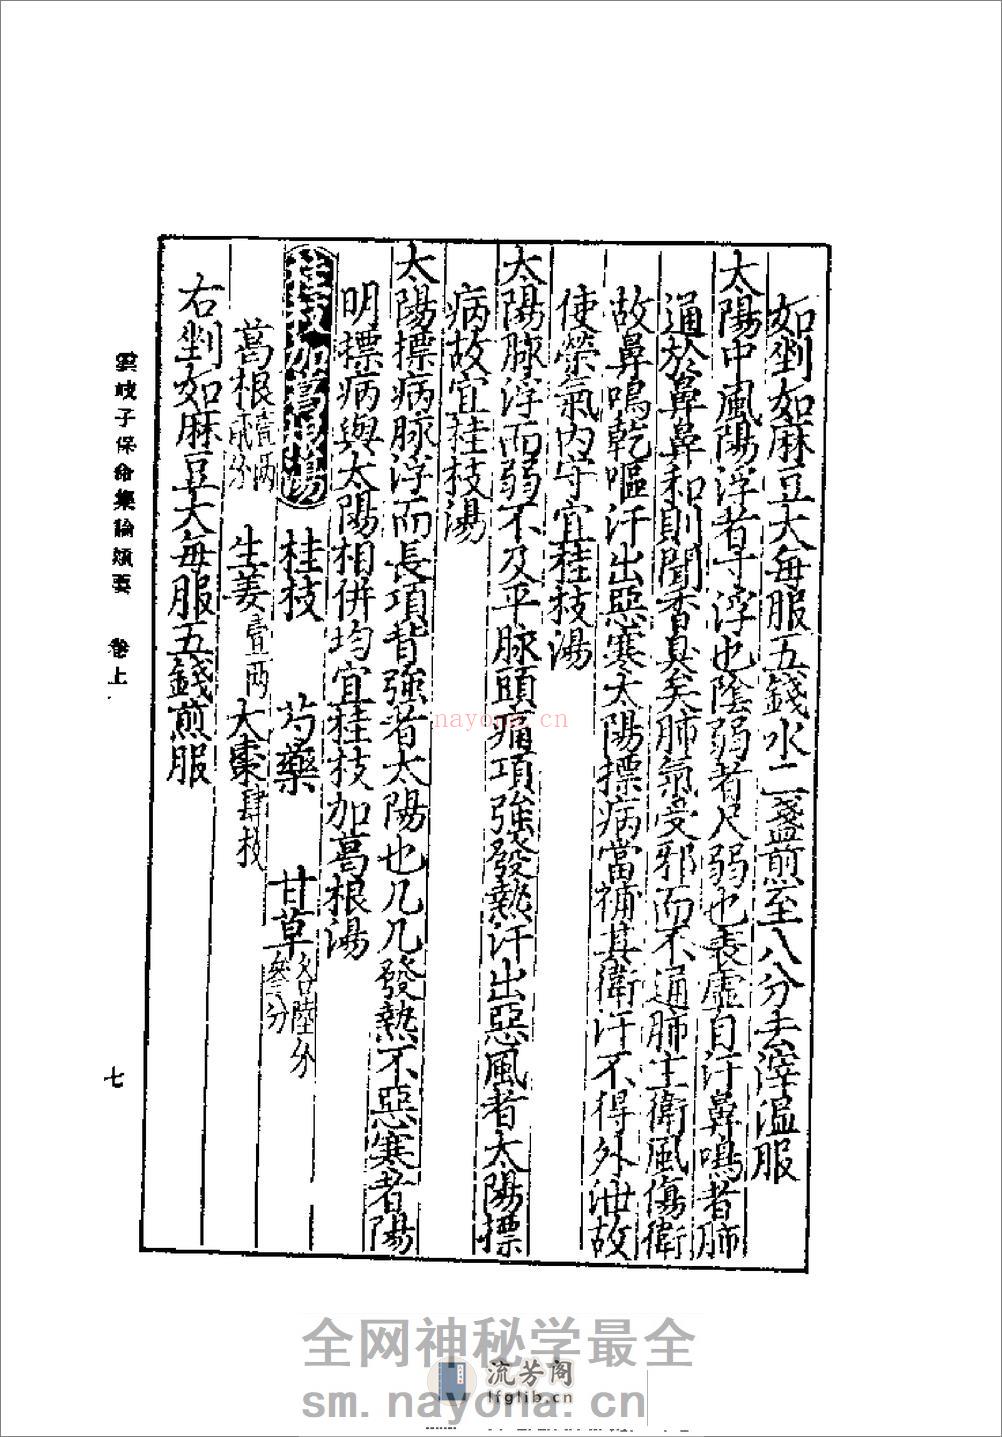 如剉如麻豆大每服五錢水二盞煎至八分去滓溫服
太陽中風陽浮者寸浮也陰弱者尺弱也表虛自汗鼻鳴者肺
通於鼻鼻和則聞香臭矣肺氣受邪而不通肺主衛風傷衛
故鼻鳴乾嘔汗出惡寒太陽摽病當補其衛汗不得外泄故
使榮氣內守宜桂枝湯
太陽脉浮而弱不及平脉頭痛項強發熱汗出惡風者太陽摽
病故宜桂枝湯
太陽摽病脉浮而長項背強者太陽也几几發熱不惡寒者陽
明摽病與太陽相併均宜桂枝加葛根湯
桂枝加葛根湯 桂枝 芍藥 甘草各陸分參分
葛根壹兩貳分 生姜壹兩 大棗肆枚
右剉如麻豆大每服五錢煎服
雲岐子保命集論類要 卷上 七
nayona.cn
全网神秘学最全
流芳阁
lfglib.cn
sm.nayona.cn